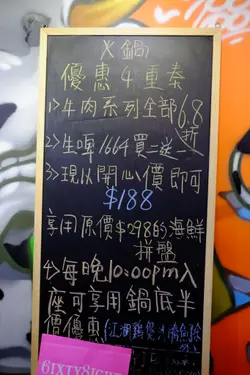 X鍋
優惠4重奏
1>牛肉系列全部6.8折
2>生啤1664買二送一
3>現以開心價即可
$188
享用原價$298海鮮
拼盤
4>每晚10:00pm入
座可享用鍋底半
價優惠
6IXTY8IGHT